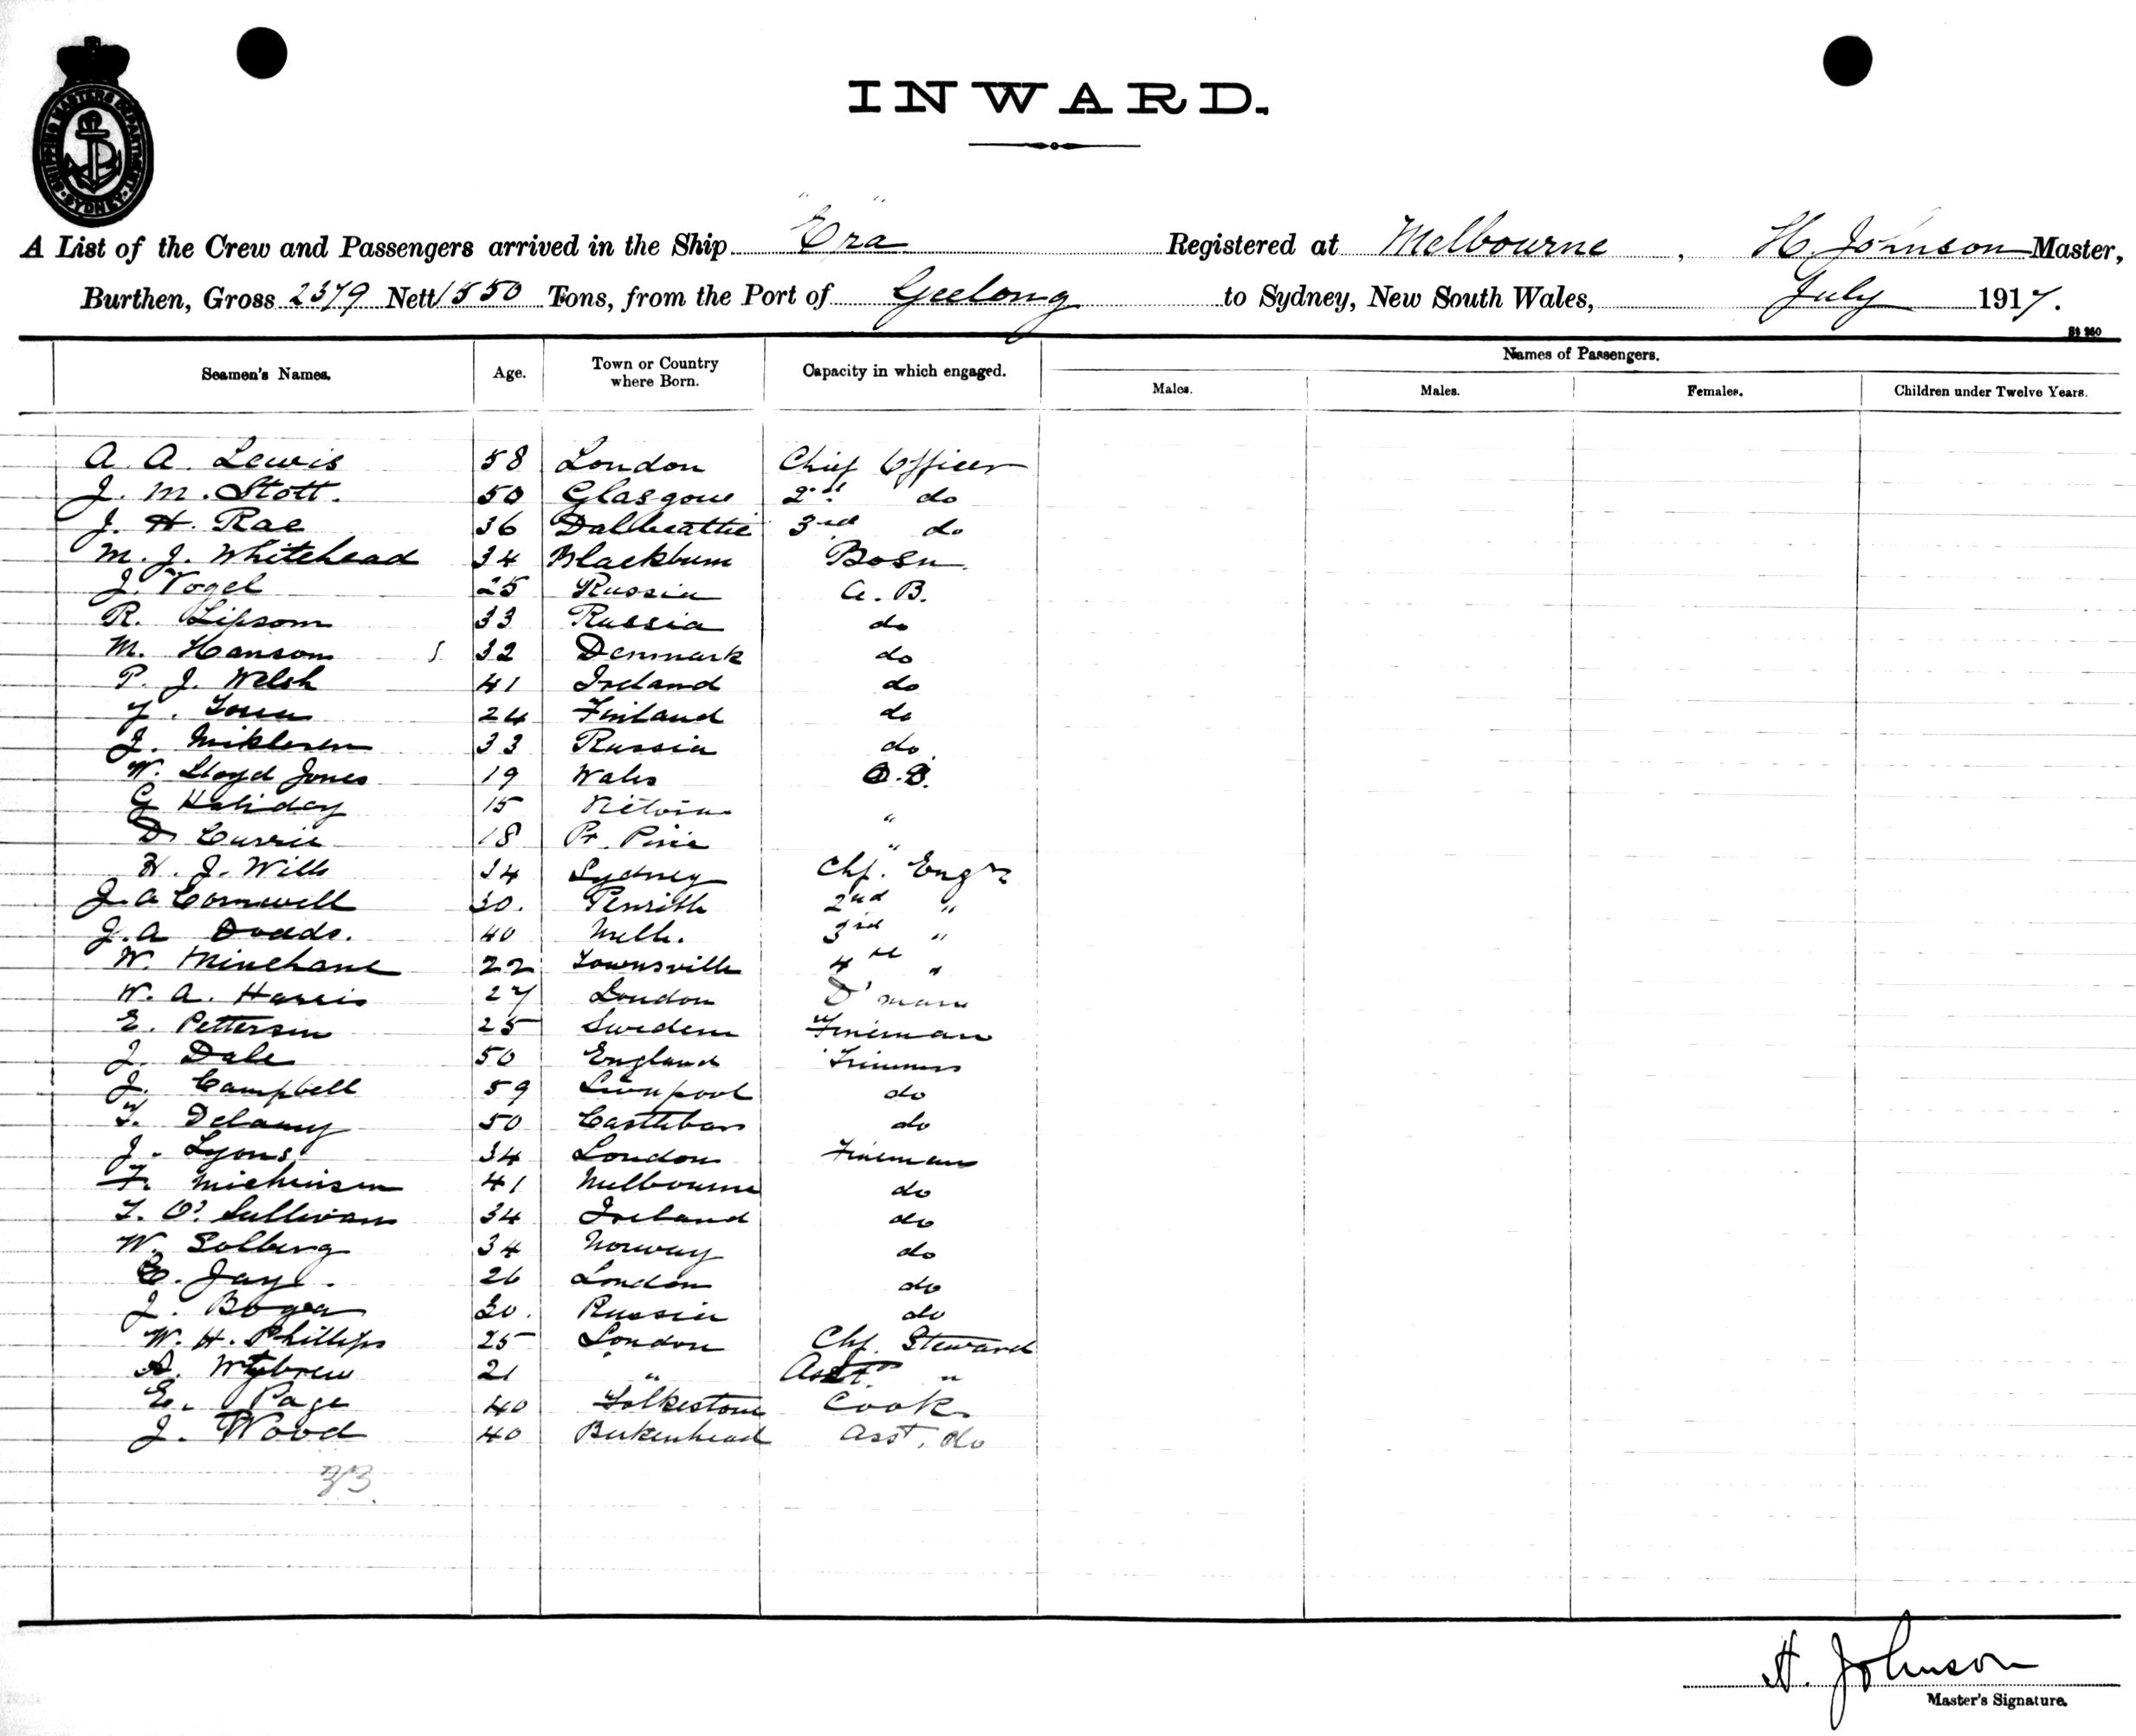 SHIPPING MASTERS DEPARTMENT SYDNEY
INWARD.
A List of the Crew and Passengers arrived in the Ship "Era" Registered at Melbourne, H. Johnson Master,
Burthen, Gross 2379 Nett 1550 Tons, from the Port of Geelong to Sydney, New South Wales, July 1917.
Names of Passengers.
Seamen's Names. Age. Town or Country where Born. Capacity in which engaged. Males. Males. Females. Children under Twelve Years.
A. A. Lewis 58 London Chief Officer
J. M. Stott. 50 Glasgow 2nd do
J. H. Rae 36 Dalbeattie 3rd do
M. J. Whitehead 34 Blackburn Bosn.
J. Vogel 25 Russia A. B.
R. Lipsom 33 Russia do
M. Hanson 32 Denmark do
P. J. Welsh 41 Ireland do
24 Finland do
J. 33 Russia do
W. Lloyd Jones 19 Wales O.S.
G Haliday 15 "
D Currie 18 Pt. Pirie "
H. J. Wills 34 Sydney Chf. Engr
J. A Cornwell 30. Penrith 2nd "
J. A Dodds. 40 Melb. 3rd "
W. Minehane 22 Townsville 4th "
W. A. Harris 27 London D'man
E. Petterson 25 Sweden Fireman
J. Dale 50 England Trimmer
J. Campbell 59 Liverpool do
T. Delany 50 Castlebar do
J. Lyons 34 London Fireman
F. 41 Melbourne do
T. O'Sullivan 34 Ireland do
W. Solberg 34 Norway do
E. Jay. 26 London do
J. 30. Russia do
W. H. Phillips 25 London Chf. Steward
A. Wybrew 21 " Asst. "
E. Page 40 Folkestone Cook
J. Wood 40 Birkenhead Asst. do
H. Johnson
Master's Signature.